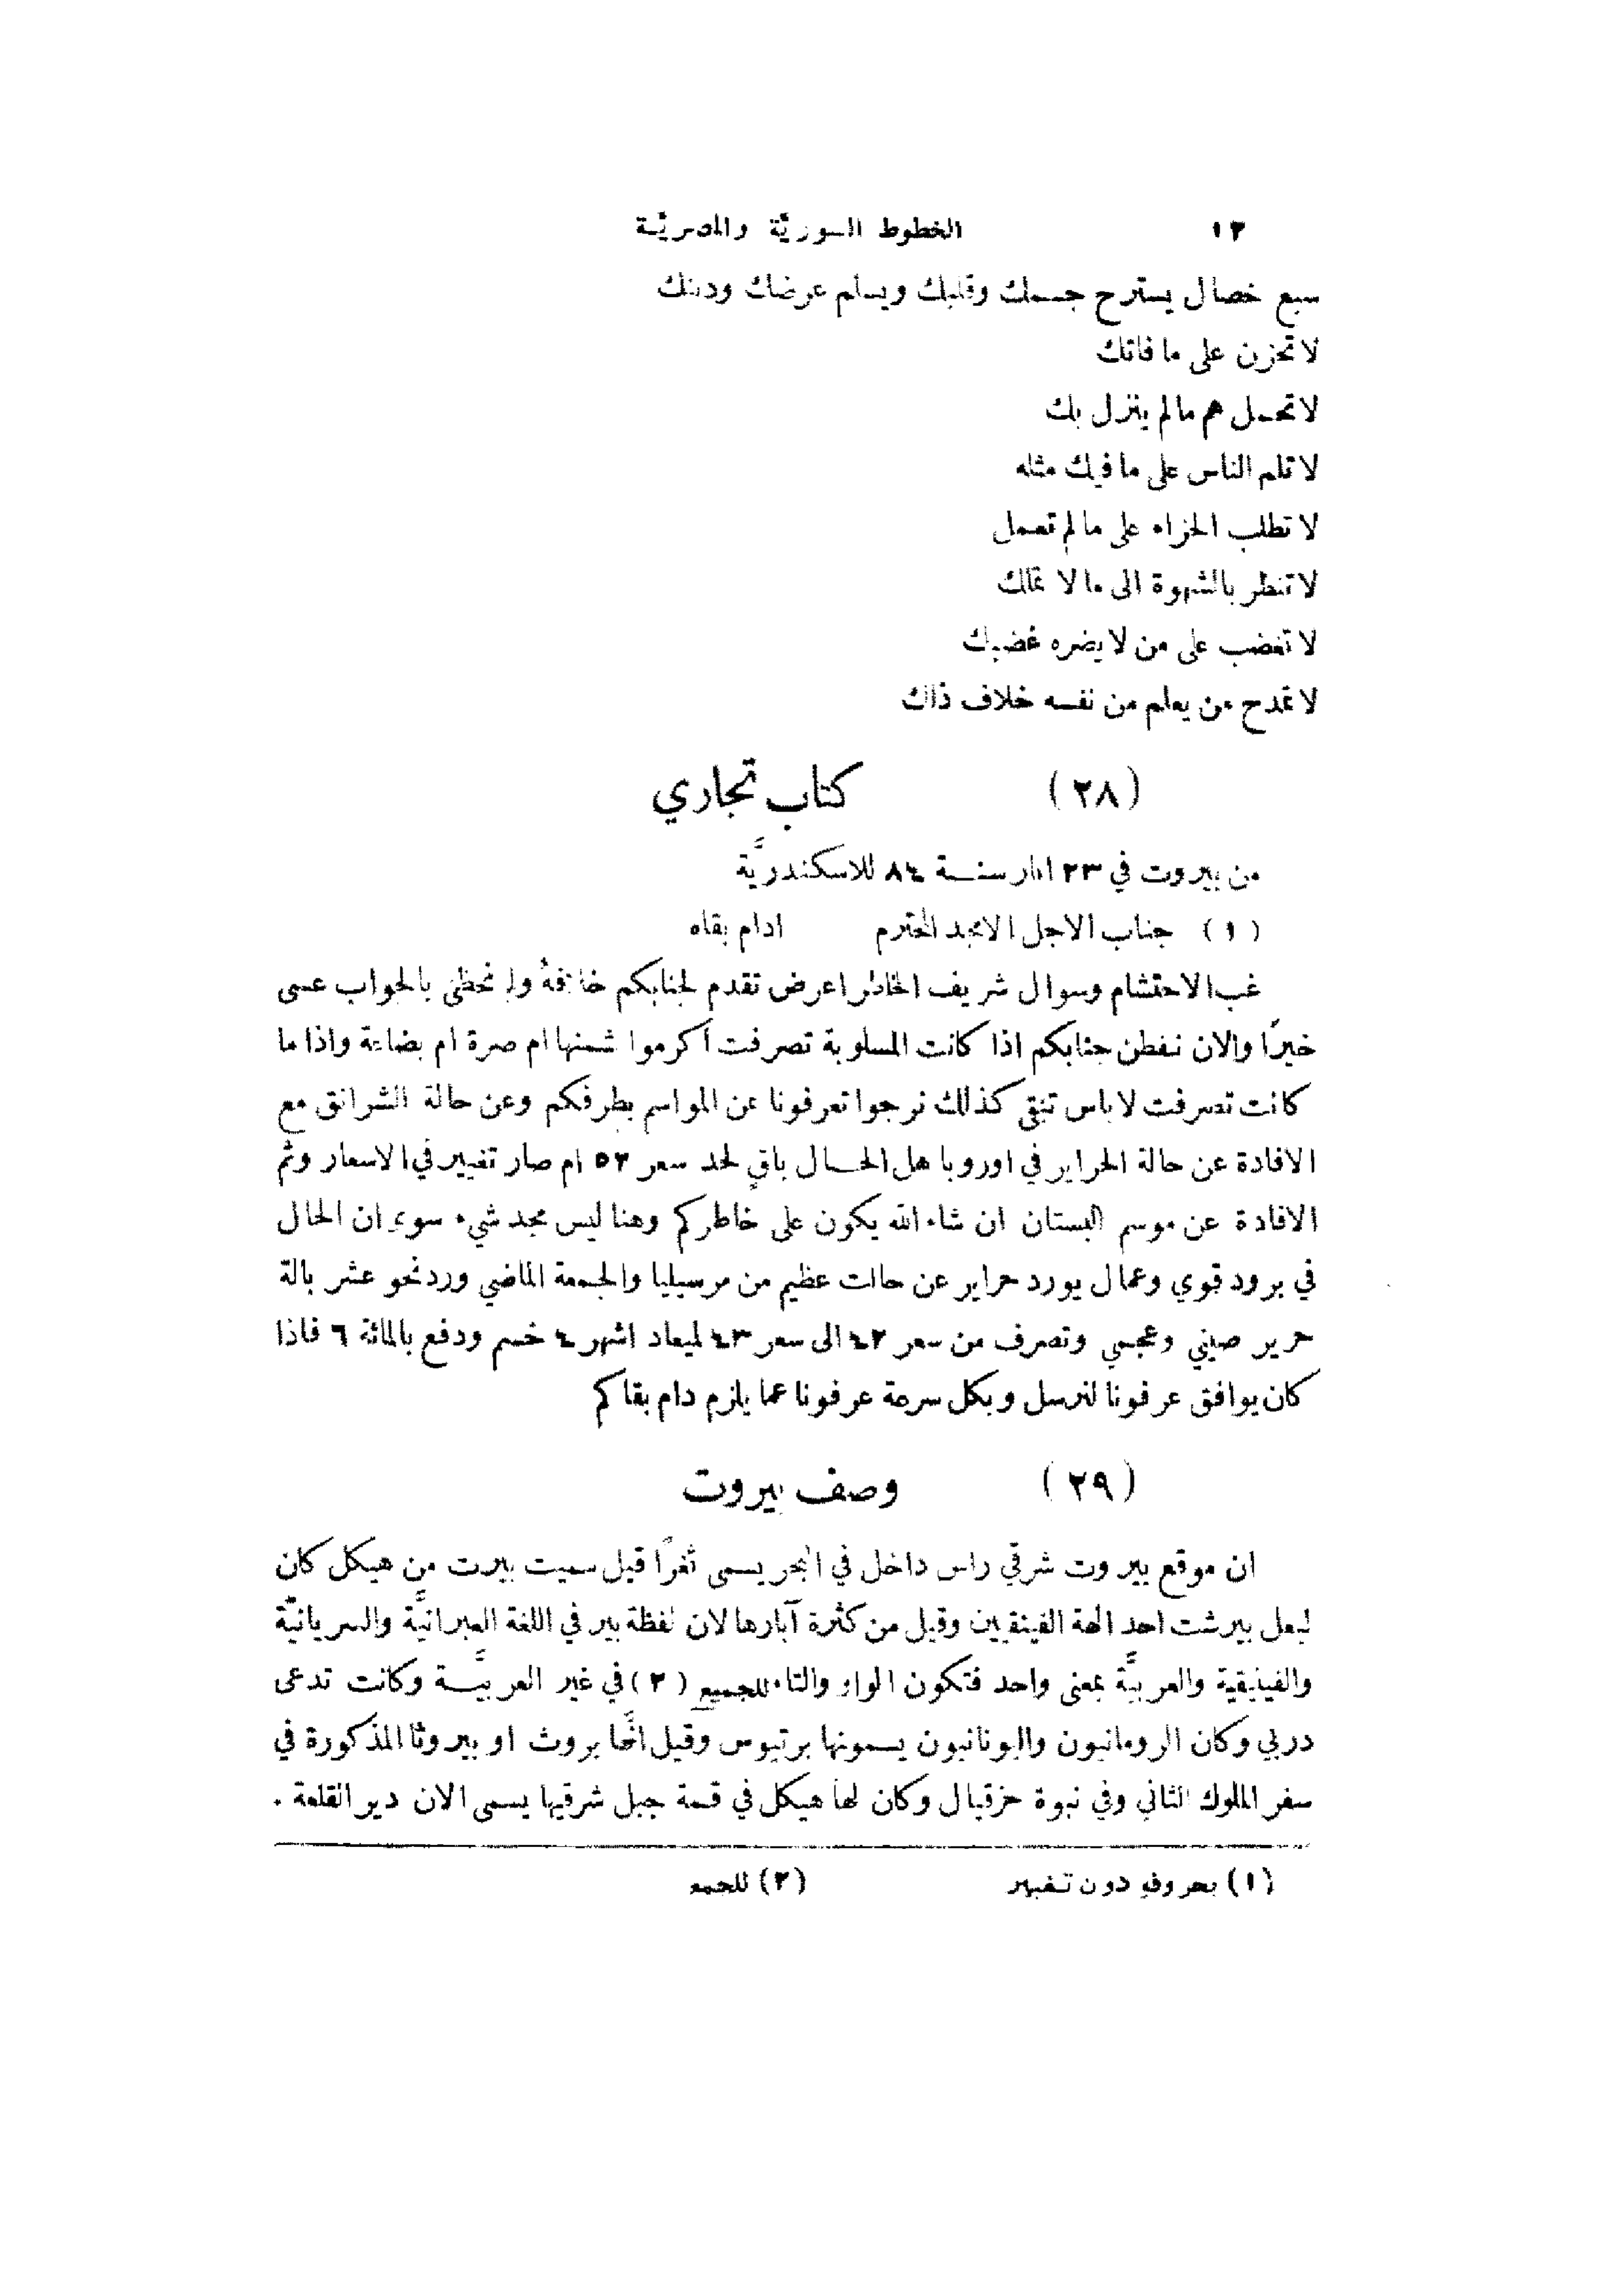 ١٢ الخطوط السوريَّة والمصريَّة
سبع خصال يسترح جسمك وقلبك ويسلم عرضك ودينك
لا تحزن على ما فاتك
لا تحمل هم ما لم ينزل بك
لا تلم الناس على ما فيك مثله
لا تطلب الجزاء على ما لم تعمل
لا تنظر بالشهوة الى ما لا تملك
لا تغضب على من لا يضره غضبك
لا تمدح من يعلم من نفسه خلاف ذلك
(٢٨) كتاب تجاري
من بيروت في ٢٣ اذار سنة ٨٤ للاسكندريَّة
(١) جناب الاجل الامجد المحترم ادام بقاه
غب الاحتشام وسوال شريف الخاطر اعرض تقدم لجنابكم خلافهُ ولم نحظى بالجواب عسى
خيرًا والان نفطن جنابكم اذا كانت المسلوبة تصرفت أكرموا بثمنها ام صرة ام بضاعة واذا ما
كانت تصرفت لا باس تبقى كذلك نرجوا تعرفونا عن المواسم بطرفكم وعن حالة الشرانق مع
الافادة عن حالة الحراير في اوروبا هل الحال باقٍ لحد سعر ٥٢ ام صار تغيير في الاسعار وثم
الافادة عن موسم البستان ان شاء الله يكون على خاطركم وهنا ليس مجد شيء سوى ان الحال
في برود قوي وعمال يورد حراير عن حالت عظيم من مرسيليا والجمعة الماضي ورد نحو عشر بالة
حرير صيني وعجمي وتصرف من سعر ٤٢ الى سعر ٤٣ لميعاد اشهر ٤ خسم ودفع بالمائة ٦ فاذا
كان يوافق عرفونا لنرسل وبكل سرعة عرفونا عما يلزم دام بقاكم
(٢٩) وصف بيروت
ان موقع بيروت شرقي راس داخل في البحر يسمى ثغرًا قيل سميت بيرت من هيكل كان
لبعل بيرشت احد الهة الفينقيين وقيل من كثرة آبارها لان لفظة بير في اللغة العبرانيَّة والسريانيَّة
والفينيقية والعربيَّة بمعنى واحد فتكون الواو والتاء للجميع (٢) في غير العربيَّة وكانت تدعى
دربي وكان الرومانيون واليونانيون يسمونها برتيوس وقيل انَّها بروث او بيروثا المذكورة في
سفر الملوك الثاني وفي نبوة حزقيال وكان لها هيكل في قمة جبل شرقيها يسمى الان دير القلعة .
(١) بحروفهِ دون تغيير (٢) للجمع